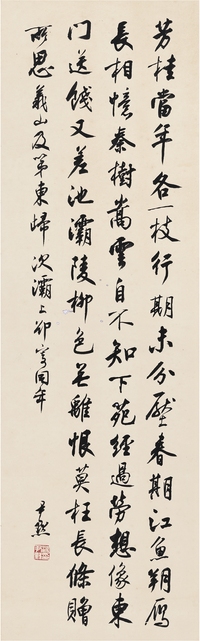 芳桂當年各一枝行期未分壓春期江魚朔雁
長相憶秦樹嵩雲自不知下苑經過勞想像東
門送餞又差池灞陵柳色无離恨莫枉長條贈
所思 義山及第東歸次灞上卻寄同年
尹默